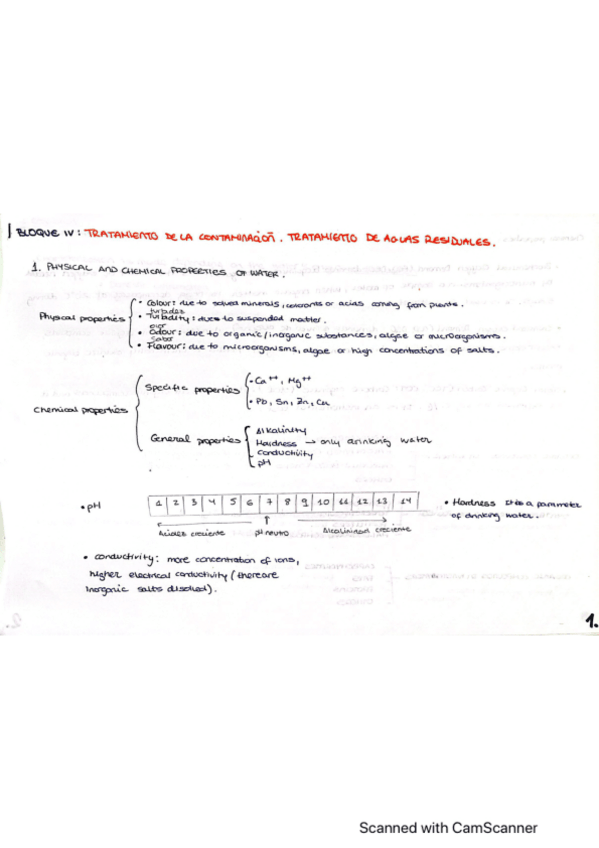 BLOQUE IV: TRATAMIENTO DE LA CONTAMINACIÓN. TRATAMIENTO DE AGUAS RESIDUALES.
1. PHYSICAL AND CHEMICAL PROPERTIES OF WATER.
Physical properties
• Colour: due to solved minerals, colorants or acids coming from plants.
turbidez
• Turbidity: due to suspended matter.
olor
• Odour: due to organic/inorganic substances, algae or microorganisms.
Sabor
• Flavour: due to microorganisms, algae or high concentrations of salts.
Chemical properties
Specific properties
• Ca⁺⁺, Mg⁺⁺
• Pb, Sn, Zn, Cu
General properties
Alkalinity
Hardness → only drinking water
Conductivity
pH
• pH
1 2 3 4 5 6 7 8 9 10 11 12 13 14
Acidez creciente
pH neutro
Alcalinidad creciente
• Hardness it is a parameter
of drinking water.
• Conductivity: more concentration of ions,
higher electrical conductivity (therefore
inorganic salts disolved).
1.
Scanned with CamScanner